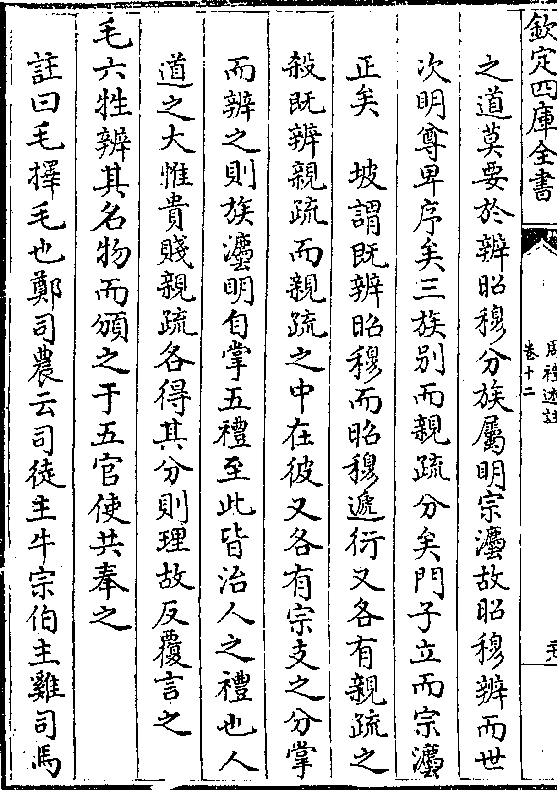 欽定四庫全書
周禮述註
卷十二
之道莫要於辨昭穆分族屬明宗灋故昭穆辨而世
次明尊卑序矣三族别而親疏分矣門子立而宗灋
正矣　坡謂既辨昭穆而昭穆遞衍又各有親疏之
殺既辨親疏而親疏之中在彼又各有宗支之分掌
而辨之則族灋明自掌五禮至此皆治人之禮也人
道之大惟貴賤親疏各得其分則理故反覆言之
毛六牲辨其名物而頒之于五官使共奉之
註曰毛擇毛也鄭司農云司徒主牛宗伯主雞司馬